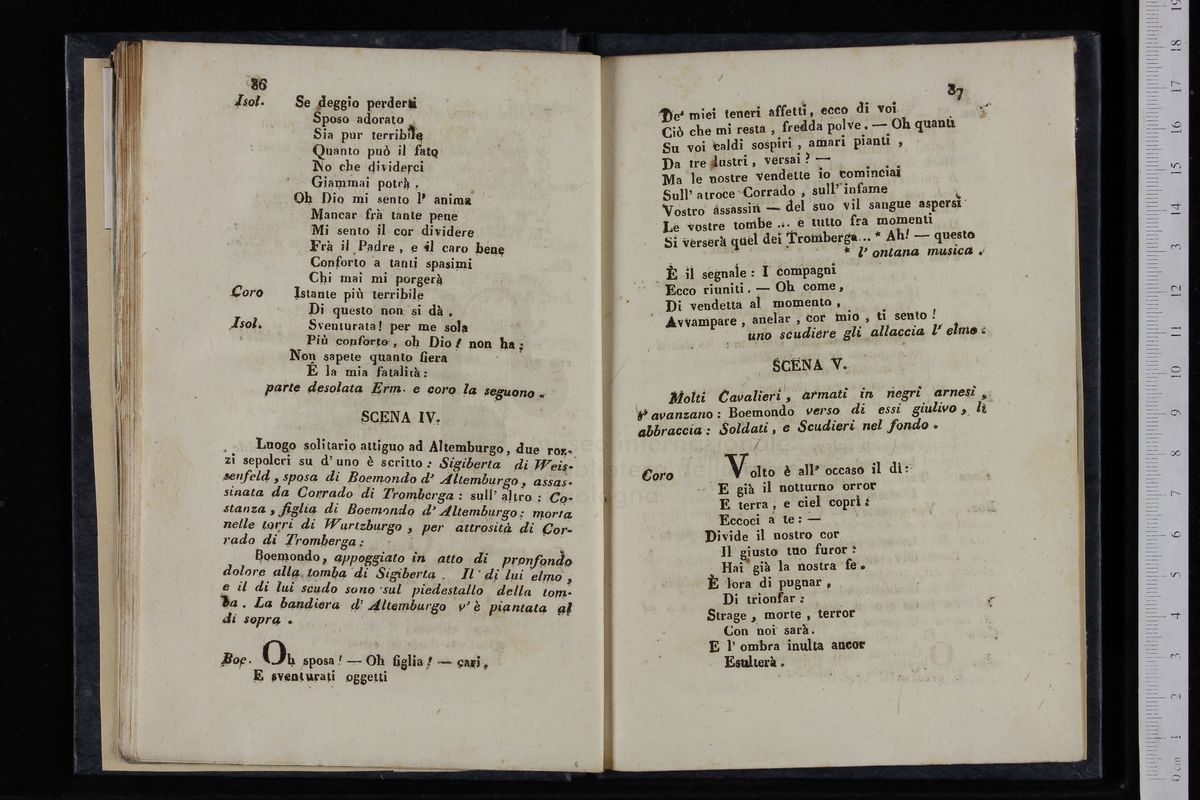 36
Isol. Se deggio perderti
Sposo adorato
Sia pur terribile
Quanto può il fato
No che dividerci
Giammai potrà .
Oh Dio mi sento l' anima
Mancar frà tante pene
Mi sento il cor dividere
Frà il Padre , e il caro bene
Conforto a tanti spasimi
Chi mai mi porgerà
Coro Istante più terribile
Di questo non si dà .
Isol. Sventurata! per me sola
Più conforto , oh Dio ! non ha ;
Non sapete quanto fiera
È la mia fatalità :
parte desolata Erm. e coro la seguono .
SCENA IV.
Luogo solitario attiguo ad Altemburgo, due roz-
zi sepolcri su d' uno è scritto : Sigiberta di Weis-
senfeld , sposa di Boemondo d' Altemburgo , assas-
sinata da Corrado di Tromberga : sull' altro : Co-
stanza , figlia di Boemondo d' Altemburgo : morta
nelle torri di Wurtzburgo , per attrosità di Cor-
rado di Tromberga :
Boemondo, appoggiato in atto di pronfondo
dolore alla tomba di Sigiberta . Il di lui elmo ,
e il di lui scudo sono sul piedestallo della tom-
ba . La bandiera d' Altemburgo v' è piantata al
di sopra .
Boe. Oh sposa ! — Oh figlia ! — cari ,
E sventurati oggetti
37
De' miei teneri affetti, ecco di voi
Ciò che mi resta , fredda polve . — Oh quanti
Su voi caldi sospiri , amari pianti ,
Da tre lustri , versai ? —
Ma le nostre vendette io cominciai
Sull' atroce Corrado , sull' infame
Vostro assassin — del suo vil sangue aspersi
Le vostre tombe ... e tutto fra momenti
Si verserà quel dei Tromberga... * Ah! — questo
* l' ontana musica .
È il segnale : I compagni
Ecco riuniti . — Oh come,
Di vendetta al momento ,
Avvampare , anelar , cor mio , ti sento !
uno scudiere gli allaccia l' elmo :
SCENA V.
Molti Cavalieri , armati in negri arnesi ,
s' avanzano : Boemondo verso di essi giulivo , li
abbraccia : Soldati , e Scudieri nel fondo .
Coro Volto è all' occaso il dì :
E già il notturno orror
E terra , e ciel coprì :
Eccoci a te : —
Divide il nostro cor
Il giusto tuo furor :
Hai già la nostra fe .
È lora di pugnar ,
Di trionfar :
Strage , morte , terror
Con noi sarà .
E l' ombra inulta ancor
Esulterà .